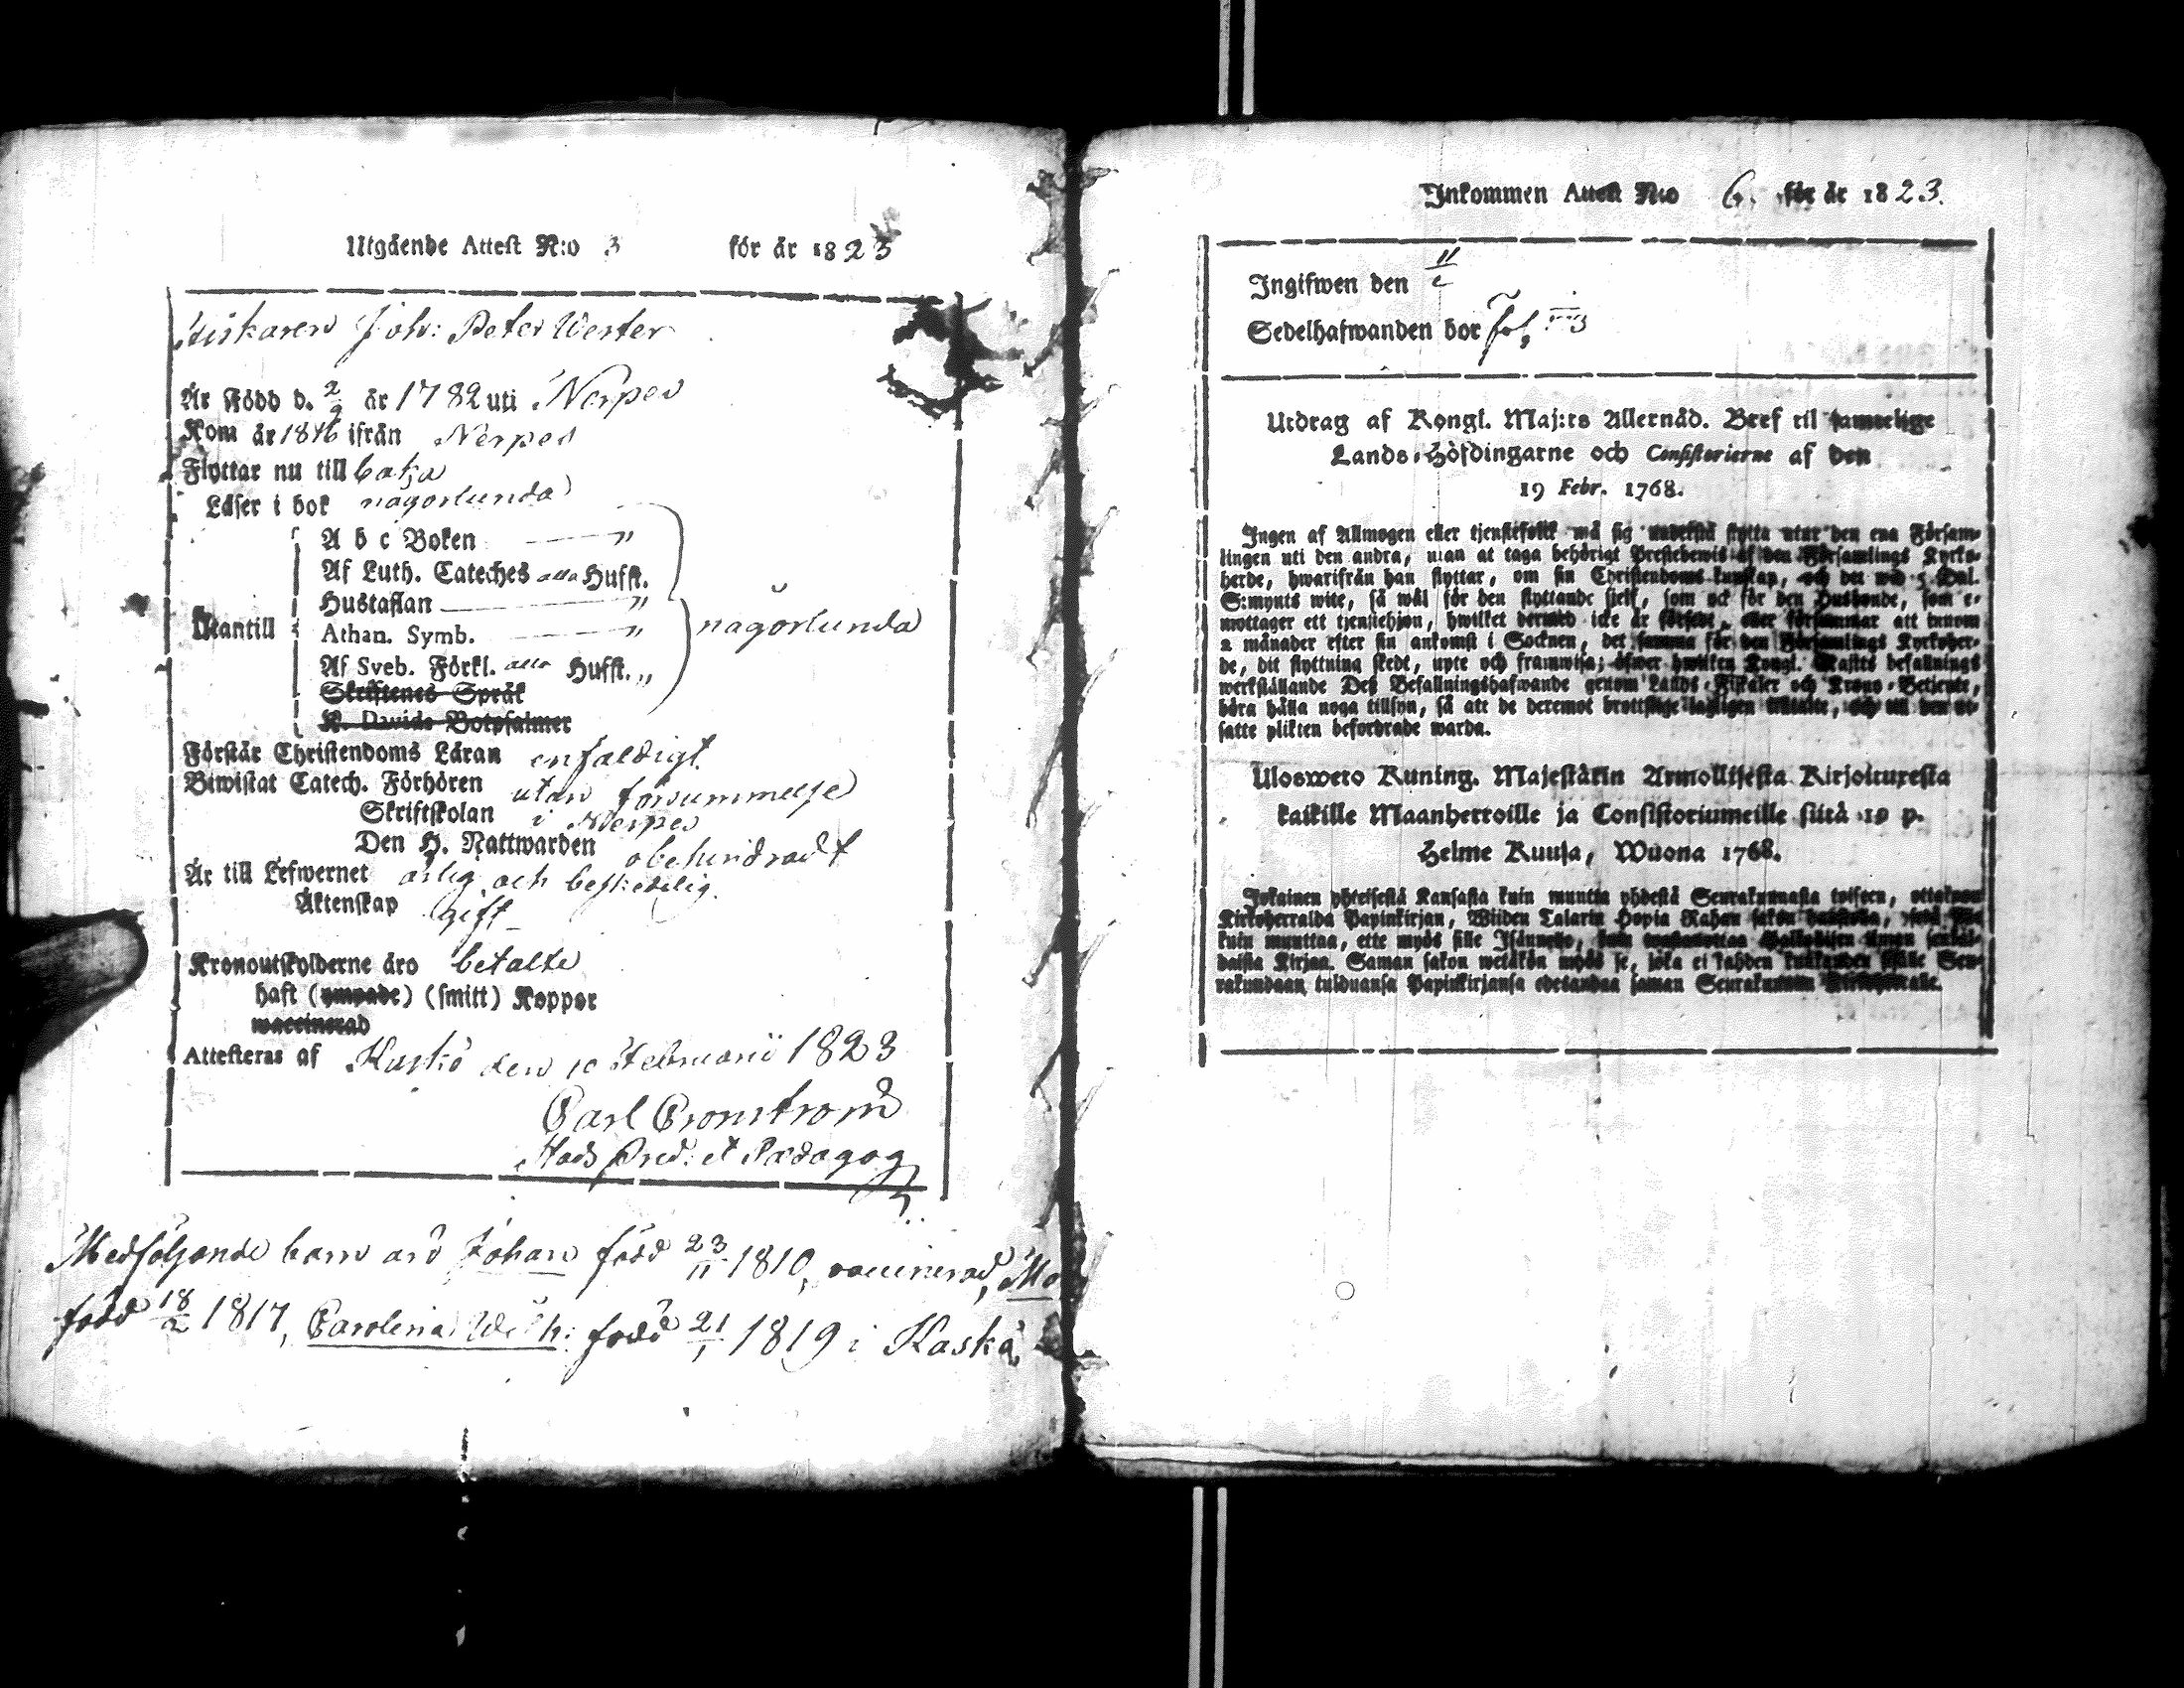 Utgående Attest N:o 3 för år 1823
Fiskaren Joh: Peter Wester
Är Född d. 2/9 år 1782 uti Nerpes
Kom år 1816 ifrån Nerpes
Flyttar nu till
Läser i bok någorlunda
A b c Boken — "
Af Luth. Cateches alla Hufst.
Hustaflan — "
Utantill Athan. Symb. — " någorlunda
Af Sveb. Förkl. alla Hufst. "
Skriftenes Språk
K. Davids Botpsalmer
Förstår Christendoms Läran enfaldigt
Biwistat Catech. Förhören utan försummelse
Skriftskolan i Nerpes
Den H. Nattwarden obehindradt
Är till Lefwernet ärlig och beskedelig.
Äktenskap gift
Kronoutskylderne äro betalte
haft (ympade) (smitt) Koppor
waccinerad
Attesteras af Kaskö den 10 Februarii 1823
Carl Cronström
Stads Pred: et Pædagog
Medföljande barn äro Johan född 23/11 1810, vaccinerad,
född 18/2 1817, Carolina född 21/1 1819 i Kaskö
Inkommen Attest N:o 6. för år 1823.
Ingifwen den 11/2
Sedelhafwanden bor
Utdrag af Kongl. Maj:ts Allernåd. Bref til samtelige
Lands-Höfdingarne och Consistorierne af den
19 Febr. 1768.
Ingen af Allmogen eller tjenstefolket må sig understå flytta utur den ena Försam-
lingen uti den andra, utan at taga behörigt Prestebewis af den Församlings Kyrko-
herde, hwarifrån han flyttar, om sin Christendoms kunskap, och det wid 5 Dal.
S:mynts wite, så wäl för den flyttande sielf, som ock för den Husbonde, som e-
mottager ett tjenstehjon, hwilket dermed icke är försedt, eller försummar att innom
2 månader efter sin ankomst i Socknen, det samma för den Församlings Kyrkoher-
de, dit flyttning skedt, upte och framwisa; öfwer hwilken Kongl. Maj:tts befallnings
werkställande Deß Befallningshafwande genom Lands-Fiskaler och Krono-Betiente,
böra hålla noga tillsyn, så att de deremot brottslige lagligen tilltalte, och till den ut-
satte plikten befordrade warda.
Uloswето Kuning. Majestätin Armollisesta Kirjoituxesta
kaikille Maanherroille ja Consistoriumeille siitä 19 p.
Helme Kuusa, Wuona 1768.
Jokainen yhteisestä Kansasta kuin muutta yhdestä Seurakunnasta toiseen, ottakoon
Kirkoherralda Papinkirjan, Wiiden Talarin Hopia Rahan sakon
kuin muuttaa, ette myös sille Isännelle,
daista Kirjaa. Saman sakon wetäkön myös se, joka ei kahden kuukauden sisälle Seu-
rakundaan tulduansa Papinkirjansa edesandaa saman Seurakunnan Kirkoherralle.